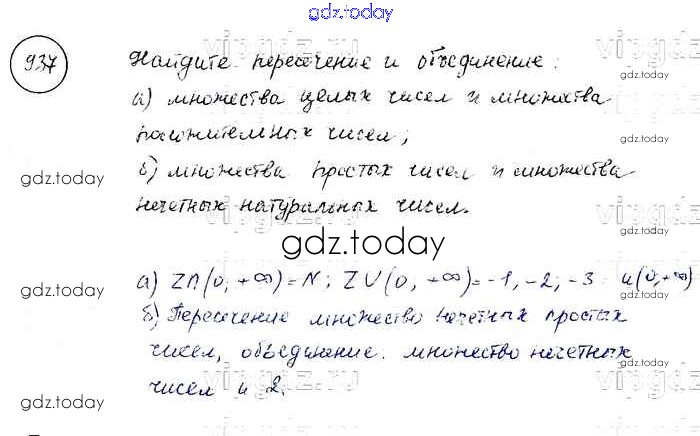 gdz.today
937
Найдите пересечение и объединение:
а) множества целых чисел и множества
положительных чисел;
б) множества простых чисел и множества
нечетных натуральных чисел.
gdz.today
а) Z∩(0; +∞)=N; Z∪(0, +∞)=-1, -2; -3 и(0;+∞)
б) Пересечение множество нечетных простых
чисел, объединение: множество нечетных
чисел и 2.
gdz.today
gdz.today
gdz.today
gdz.today
gdz.today
gdz.today
gdz.today
gdz.today